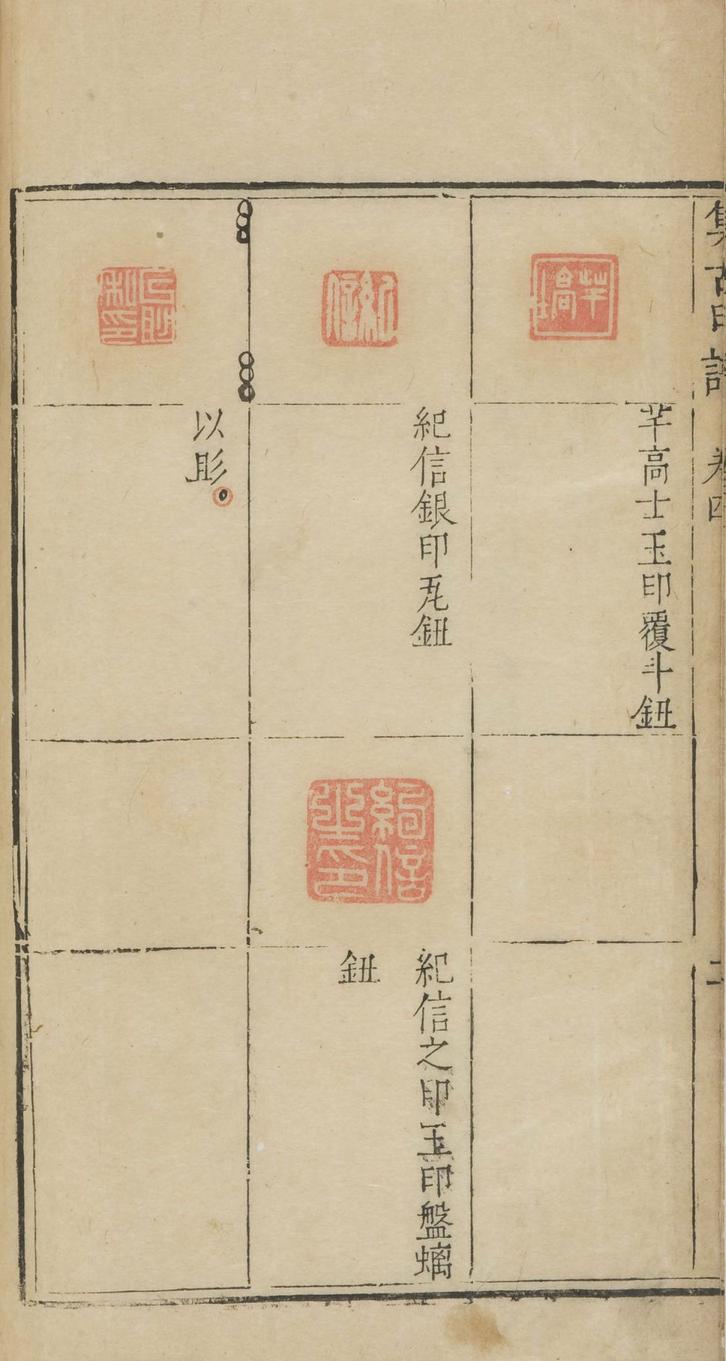 集古印譜 卷四
二
芊高士玉印覆斗鈕
紀信
紀信銀印瓦鈕
紀信之印
紀信之印玉印盤螭
鈕